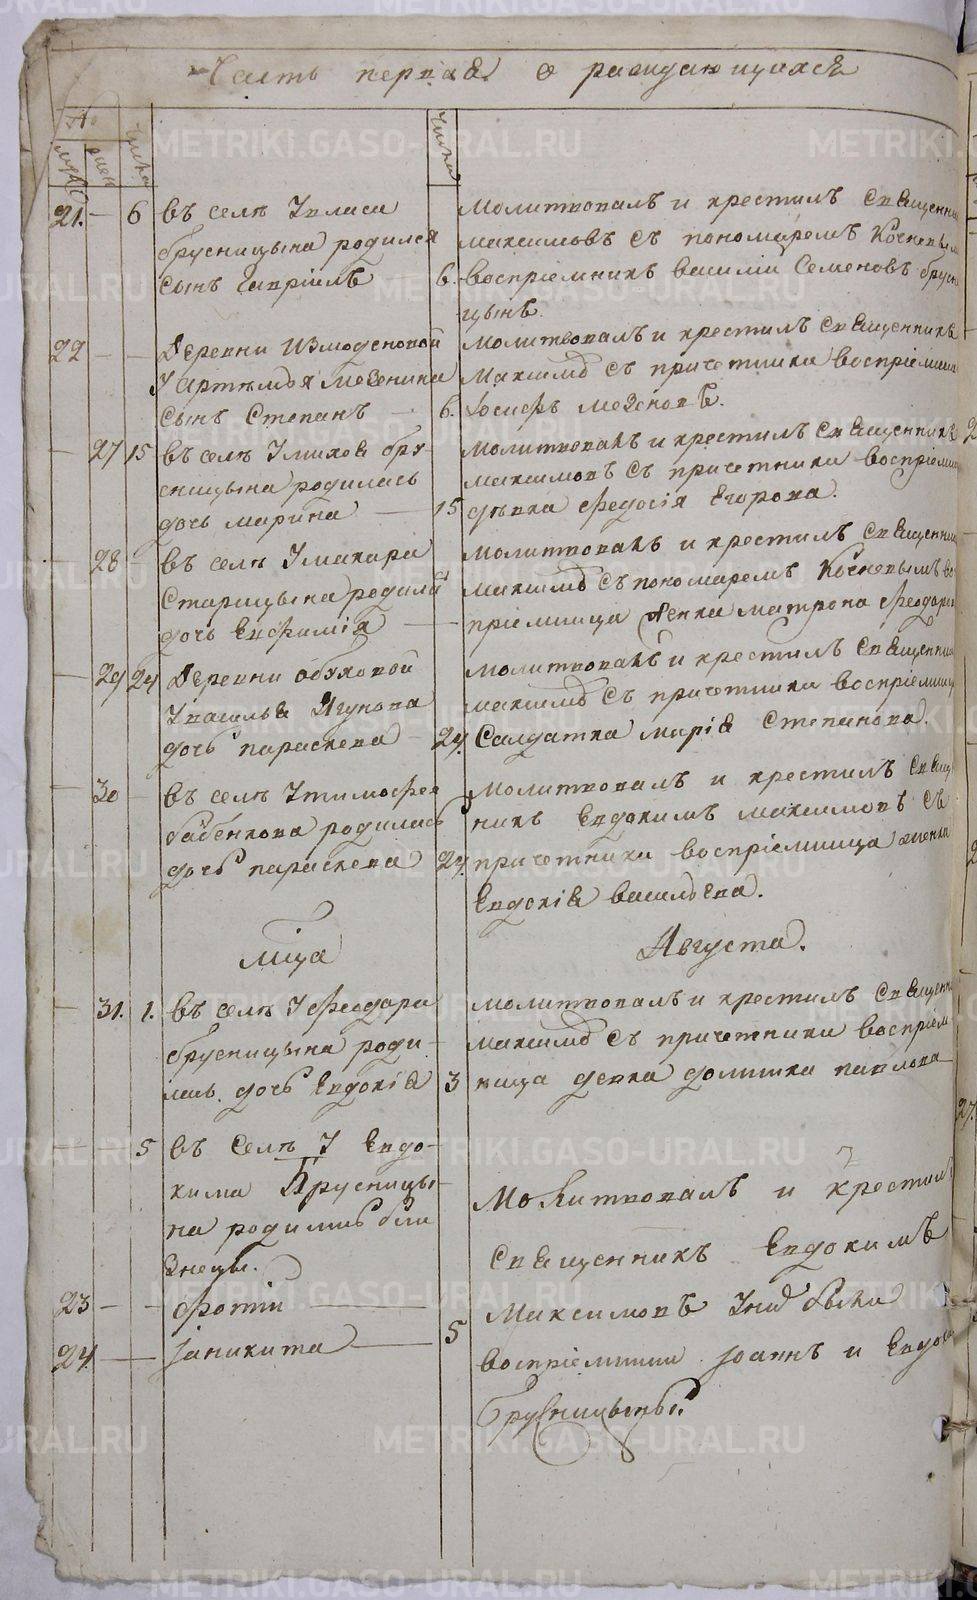 Часть первая о раждающихся
№
мужес
женс
числа
числа
21. — 6 въ селѣ У власа
брусницына родился
сынъ Гавріилъ
6.
молитвовалъ и крестилъ священни
максимовъ съ пономаремъ Коčневым
воспріемникъ василіи Семеновъ брусн
цынъ
22 — — Деревни Измоденовой
У Артемья мезенина
сынъ Степанъ —
6.
молитвовалъ и крестилъ священникъ
Максимо съ причетники воспріемни
Іосифъ мезеновъ.
— 27 15 въ селѣ У михея бру-
сницына родилась
дочь марина —
15
молитвовалъ и крестилъ священникъ
максимовъ съ причетники воспріемни
дѣвка Федосія Егорова.
— 28 — въ селѣ У макара
Старицына родила
дочь Евфимія —
молитвовалъ и крестилъ священни
максимо съ пономаремъ Кочневымъ во
пріемница Женка матрона Феодоро
— 29 24 Деревни обуховой
У василья Ягунова
дочь параскева —
24.
молитвовалъ и крестилъ священни
максимо съ причетники воспріемниц
Салдатка марія Степанова.
— 30 — въ селѣ У тимофея
бабенкова родилась
дочь параскева
24.
молитвовалъ и крестилъ свящ
никъ Евдокимъ максимовъ съ
причетники воспріемница женка
Евдокія васильева.
мца Августа.
— 31. 1. въ селѣ У феодара
брусницына роди-
лась дочь Евдокія
3
молитвовалъ и крестилъ священни
максимо съ причетники воспріем
ница девка домника павлова
— — 5 въ селѣ У Евдо-
кима Брусницы-
на родились бли
знецы.
23 — — Фотіи —
24. — Іаникита —
5
молитвовалъ и крестилъ
священникъ Евдокимъ
Максимовъ У них были
воспріемники Іоаннъ и Евдо
брусницыны.
METRIKI.GASO-URAL.RU